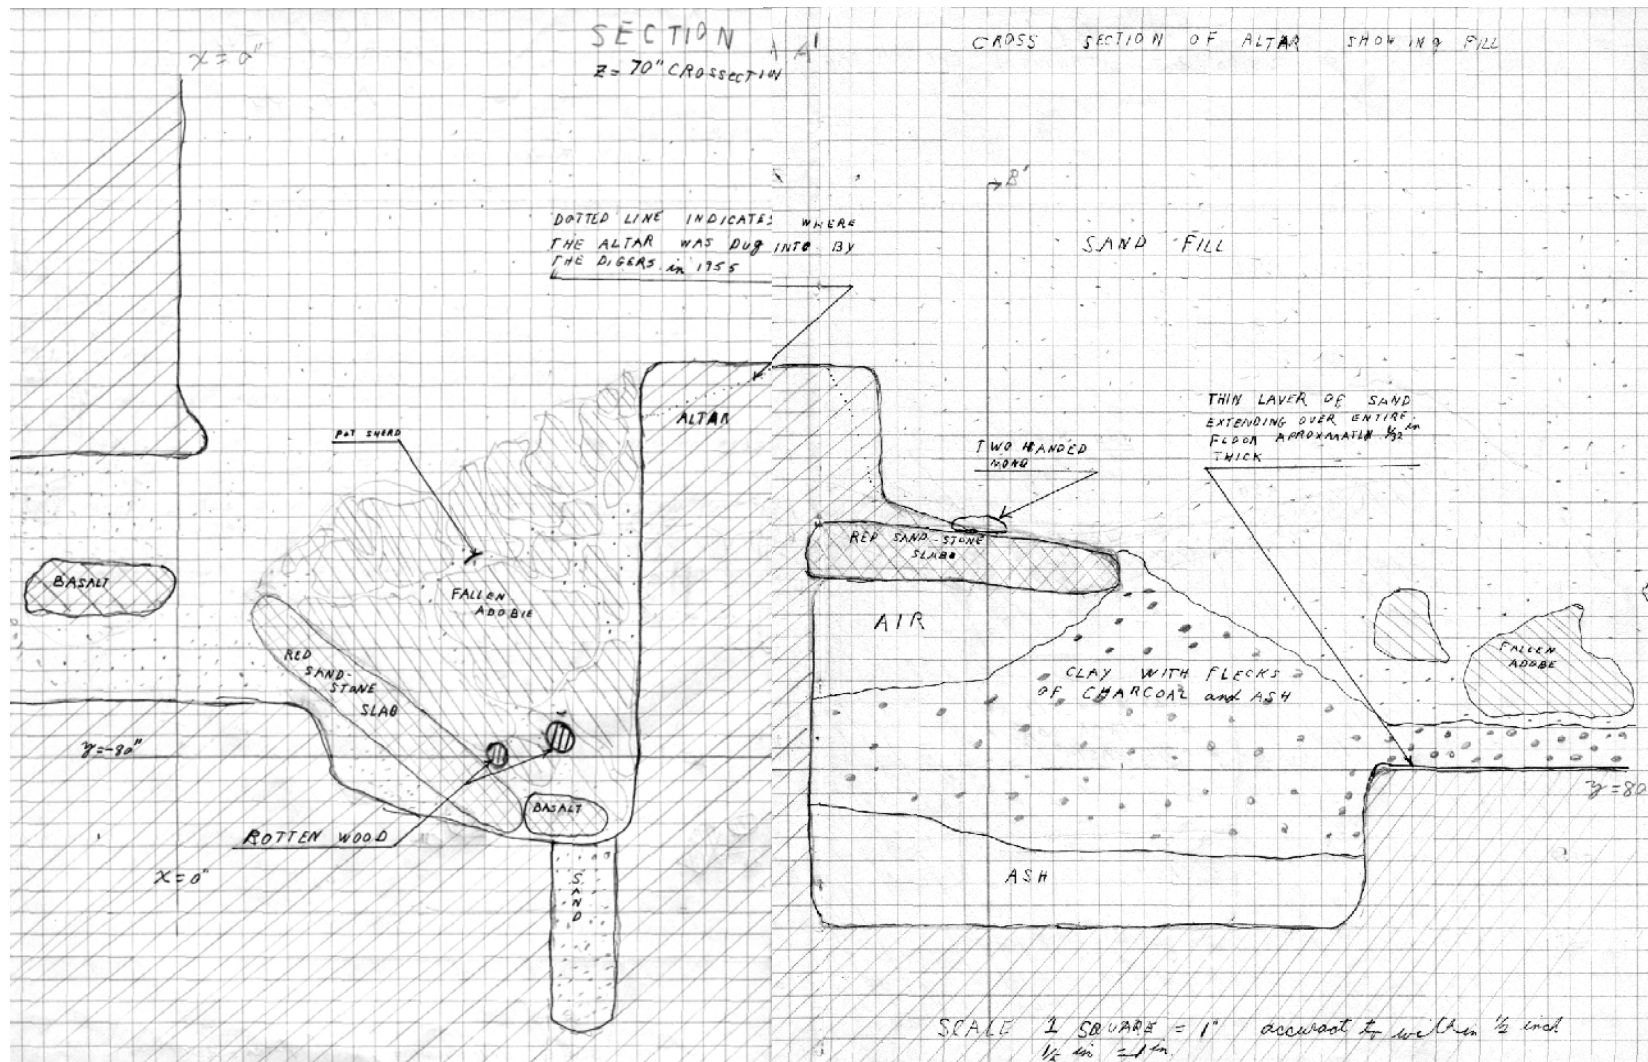 x=0"
SECTION A A'
Z=70" CROSSECTION
CROSS SECTION OF ALTAR SHOWING FILL
B'
DOTTED LINE INDICATES WHERE
THE ALTAR WAS DUG INTO BY
THE DIGERS in 1955
SAND FILL
POT SHERD
ALTAR
TWO HANDED
MONO
THIN LAYER OF SAND
EXTENDING OVER ENTIRE
FLOOR APROXMATLY 1/32 in
THICK
BASALT
FALLEN
ADOBIE
RED SAND-STONE
SLAB
AIR
RED
SAND-
STONE
SLAB
CLAY WITH FLECKS
OF CHARCOAL and ASH
FALLEN
ADOBE
y=-80"
BASALT
y=80
ROTTEN WOOD
x=0"
SAND
ASH
SCALE 1 SQUARE = 1" accuract to within 1/2 inch
1/2 in = 1 in